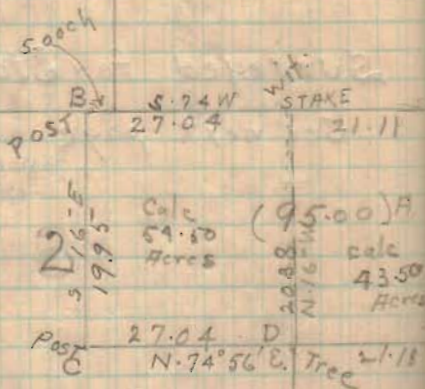 5.00ch
B S.74W Wit. STAKE
POST 27.04 21.11
2 S16-E 19.95
Calc
54.50
Acres
(95.00)A
20.88 N-16-W
calc
43.50
Acres
Post C
27.04 D
N.74°56'E. Tree 21.18